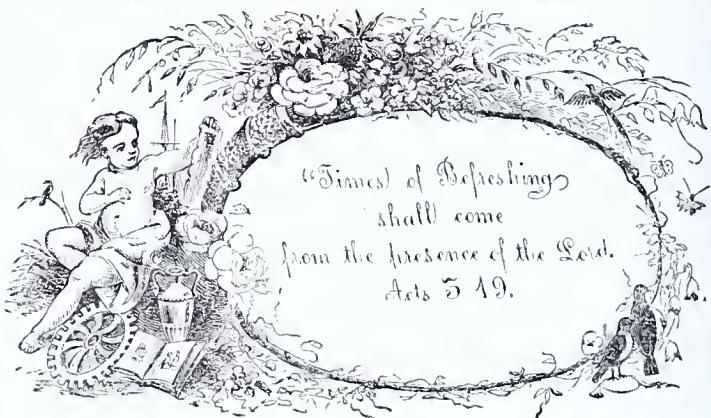 "Times of Refreshing
shall come
from the presence of the Lord.
Acts 3 19.